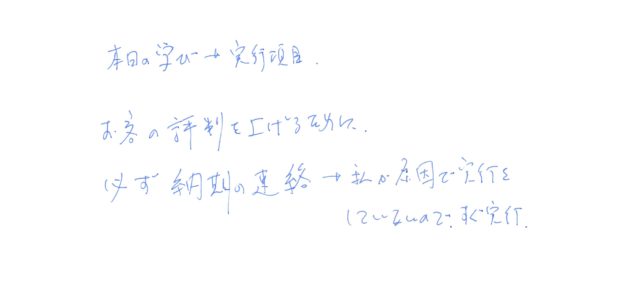 本日の学び→実行項目.
お客の評判を上げるために.
必ず納期の連絡→私が原因で実行を
していないので、すぐ実行.